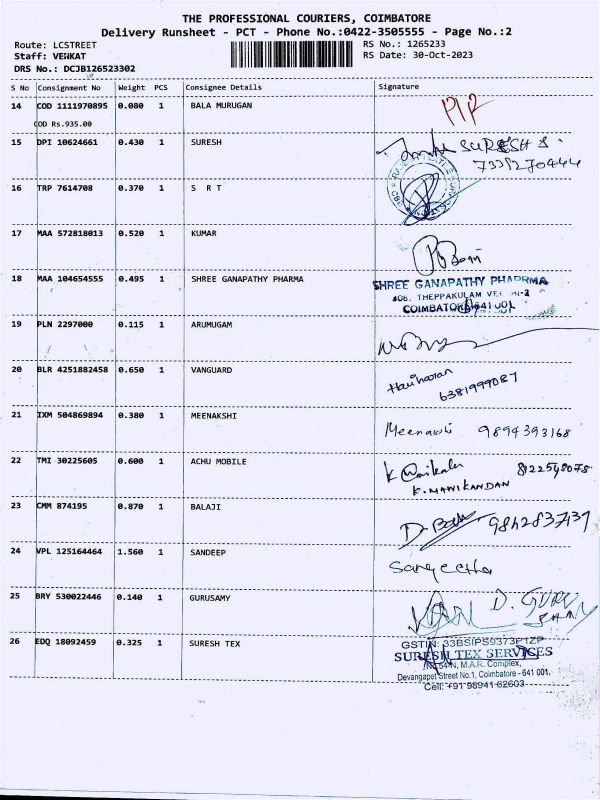 THE PROFESSIONAL COURIERS, COIMBATORE
Delivery Runsheet - PCT - Phone No.:0422-3505555 - Page No.:2
Route: LCSTREET
RS No.: 1265233
Staff: VENKAT
RS Date: 30-Oct-2023
DRS No.: DCJB126523302
S No Consignment No Weight PCS Consignee Details Signature
14 COD 1111970895 0.080 1 BALA MURUGAN
COD Rs.935.00
15 DPI 10624661 0.430 1 SURESH SURESH S
16 TRP 7614708 0.370 1 S R T
17 MAA 572818013 0.520 1 KUMAR
18 MAA 104654555 0.495 1 SHREE GANAPATHY PHARMA
SHREE GANAPATHY PHARMA
THEPPAKULAM
COIMBATORE 641 001
19 PLN 2297000 0.115 1 ARUMUGAM
20 BLR 4251882458 0.650 1 VANGUARD
Hariharan
6381999087
21 IXM 504869894 0.380 1 MEENAKSHI Meenakshi 9894393168
22 TMI 30225605 0.600 1 ACHU MOBILE
K. MANIKANDAN
23 CMM 874195 0.870 1 BALAJI
24 VPL 125164464 1.560 1 SANDEEP Sangeetha
25 BRY 530022446 0.140 1 GURUSAMY D. GURU
SAMY
26 EDQ 18092459 0.325 1 SURESH TEX
GSTIN: 33BSIPS9373P1ZP
SURESH TEX SERVICES
54N, M.A.R. Complex,
Devangapet Street No.1, Coimbatore - 641 001.
Cell: +91 98941 62603